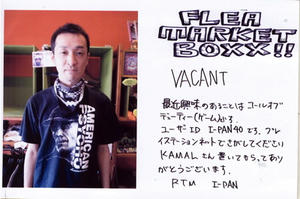 FLEA
MARKET
BOXX!!
VACANT
最近興味のあることはコールオブ
デューティー(ゲーム)です。
ユーザーID I-PAN40です、プレ
イステーションネットでさがしてください
KAMALさん置いてからってあり
がとうございます。
RTM I-PAN
AMERICAN
PSYCHO